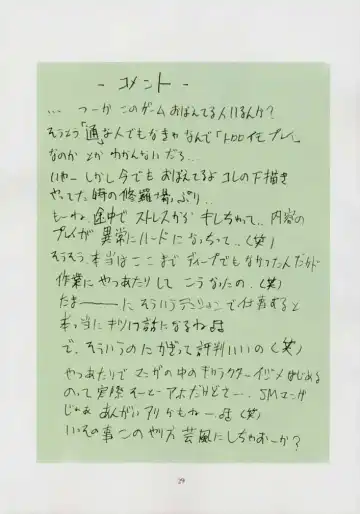 - コメント -
... つーか このゲーム おぼえてる人いるんか?
そうとう「通」な人でもなきゃ なんで「トロロイモプレイ」
なのか とか わかんないだろ...
いやー しかし今でも おぼえてるよ コレの下描き
やってた時の修羅場っぷり...
もーね、途中で ストレスから キレちゃって、内容の
プレイが 異常にハードに なっちって...(笑)
そうそう、本当は ここまで ディープでもなかったんだけど
作業に やつあたりして こうなったの.(笑)
たまーーーに そういうテンションで仕事すると
本っ当に キツイ話になるね
で、そういうのに かぎって 評判いいの(笑)
やつあたりで マンガの中のキャラクターイジメはじめる
のって 実際 そーとーアレだけどさー、SMマンガ
じゃぁ あんがい アリ かもねー (笑)
いっその事 このやり方 芸風にしちゃおーか?
29